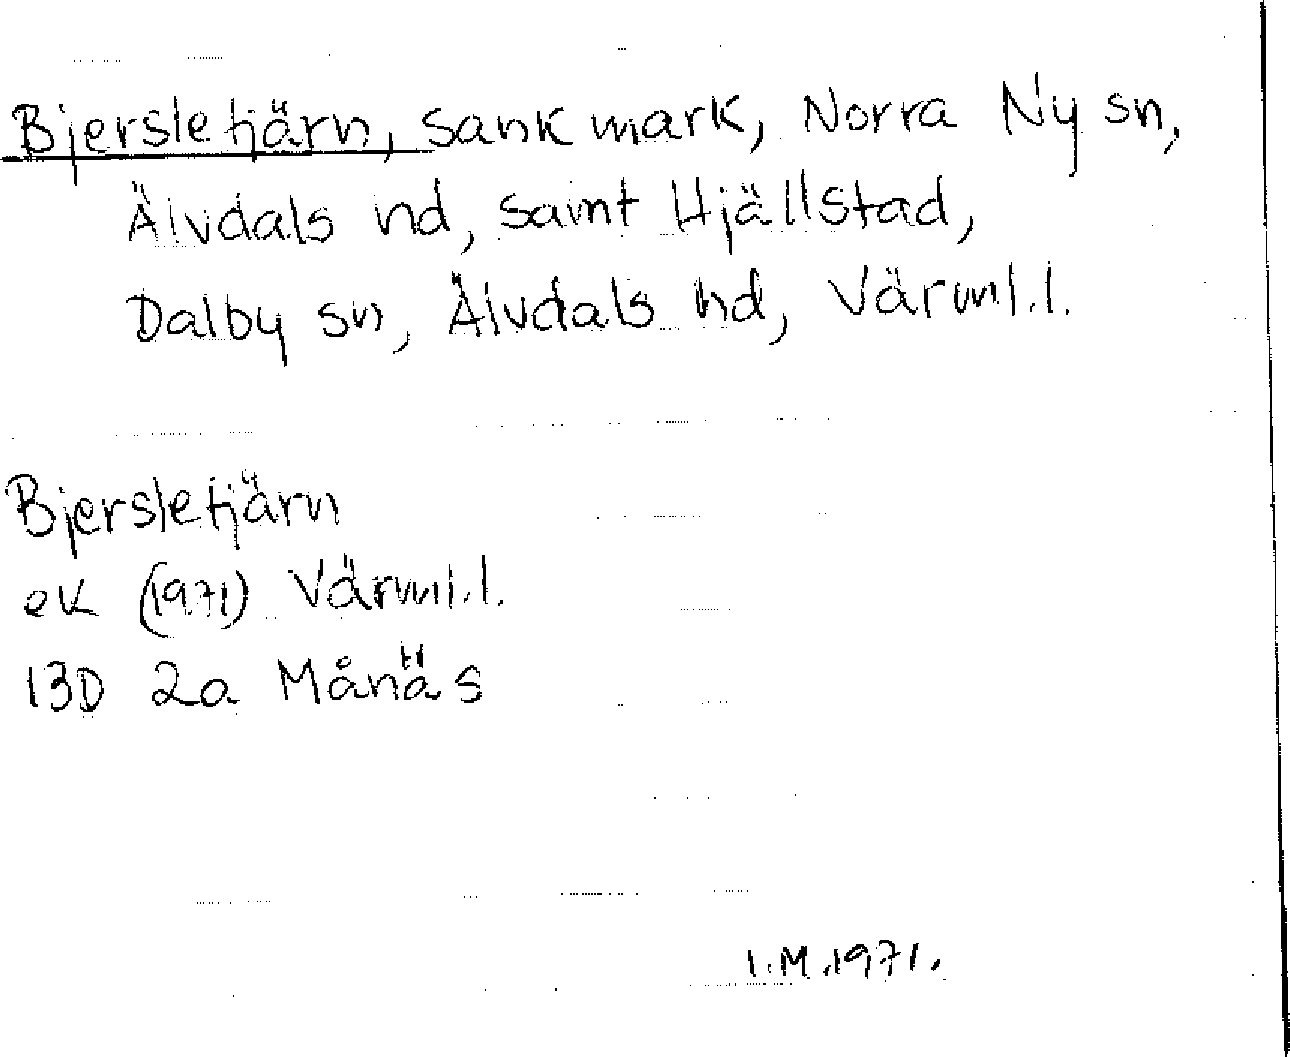 Bjersletjärn, sank mark, Norra Ny sn,
Älvdals hd, samt Hjällstad,
Dalby sn, Älvdals hd, Värml.l.
Bjersletjärn
ek (1971) Värml.l.
13D 2a Månäs
I.M.1971.